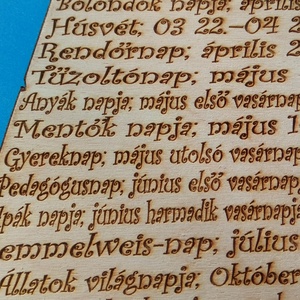 Bolondok napja, április
Húsvét, 03 22.–04 2
Rendőrnap; április 2
Tűzoltónap; május
Anyák napja; május első vasárnap
Mentők napja; május 1
Gyereknap; május utolsó vasárnap
Pedagógusnap; június első vasárnap
Apák napja; június harmadik vasárnapja
emmelweis-nap, július
Állatok világnapja; Október